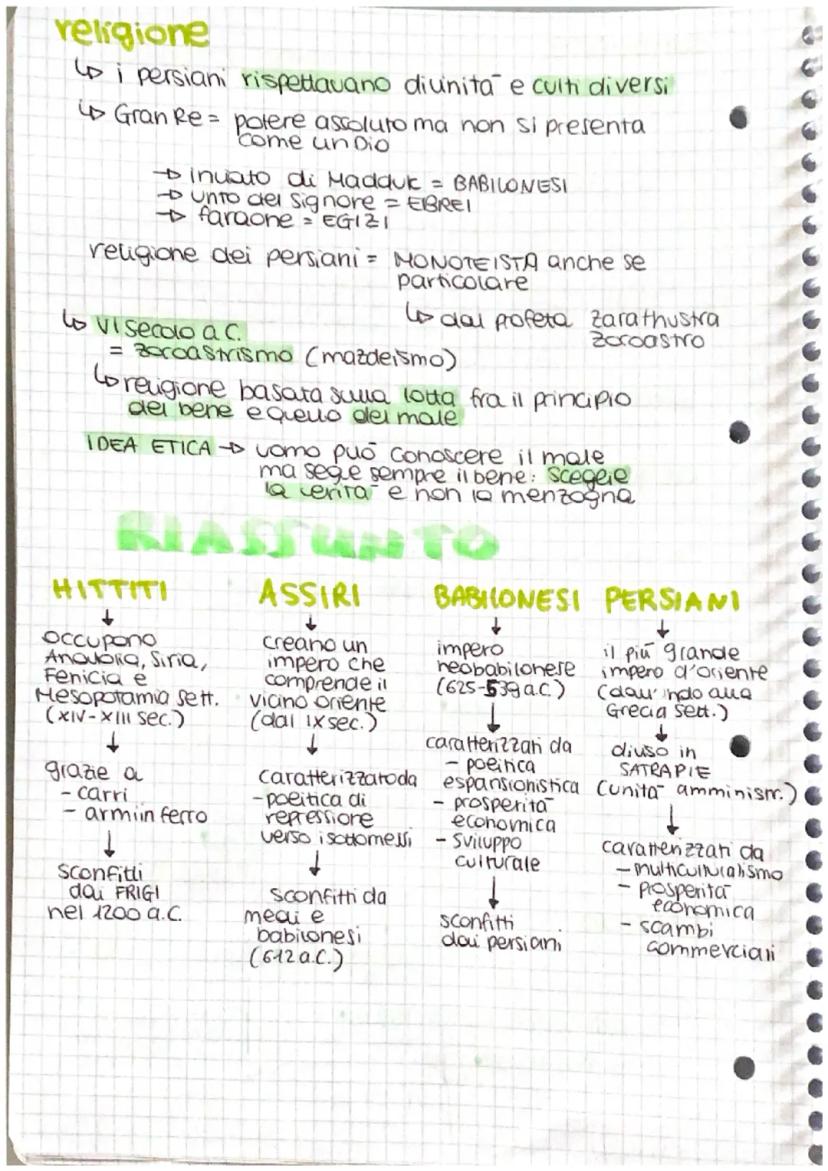 religione
↳ i persiani rispettavano divinità e culti diversi
↳ Gran Re = potere assoluto ma non si presenta
come un Dio
→ inviato di Madduk = BABILONESI
→ unto del signore = EBREI
→ faraone = EGIZI
religione dei persiani = MONOTEISTA anche se
particolare
↳ dal profeta zarathustra
zoroastro
↳ VI secolo a.C.
= zoroastrismo (mazdeismo)
↳ religione basata sulla lotta fra il principio
del bene e quello del male
IDEA ETICA → uomo può conoscere il male
ma segue sempre il bene: sceglie
la verità e non la menzogna
RIASSUNTO
HITTITI
↓
occupano
Anatolia, Siria,
Fenicia e
Mesopotamia sett.
(XIV-XIII sec.)
↓
grazie a
- carri
- armi in ferro
↓
sconfitti
dai FRIGI
nel 1200 a.C.
ASSIRI
↓
creano un
impero che
comprende il
vicino oriente
(dal IX sec.)
↓
caratterizzato da
- politica di
repressione
verso i sottomessi
↓
sconfitti da
medi e
babilonesi
(612 a.C.)
BABILONESI
↓
impero
neobabilonese
(625-539 a.C.)
↓
caratterizzati da
- politica
espansionistica
- prosperità
economica
- sviluppo
culturale
↓
sconfitti
dai persiani
PERSIANI
↓
il più grande
impero d'oriente
(dall'indo alla
Grecia sett.)
↓
diviso in
SATRAPIE
(unità amministr.)
↓
caratterizzati da
- multiculturalismo
- prosperità
economica
- scambi
commerciali